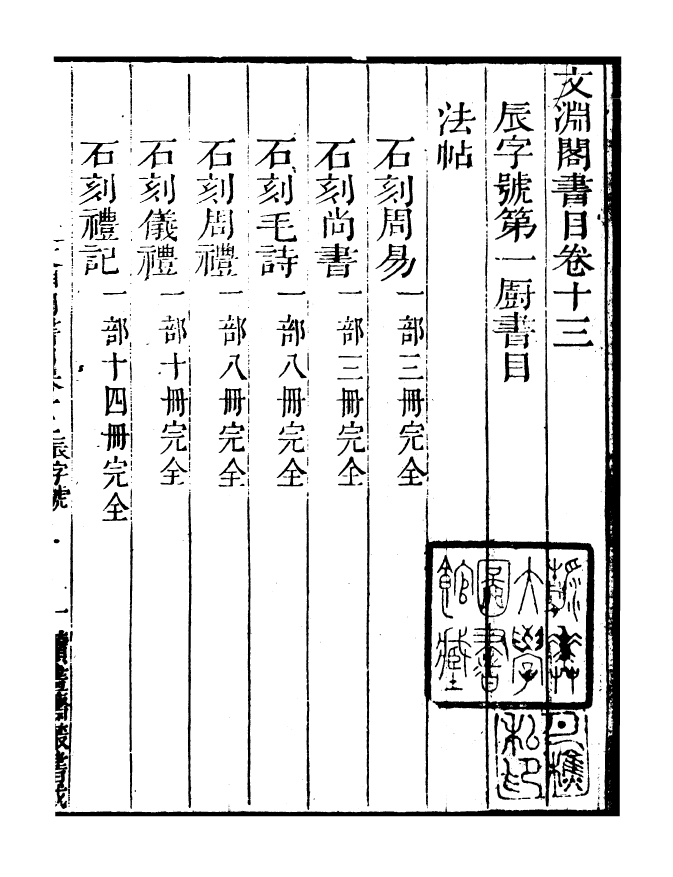 文淵閣書目卷十三
辰字號第一厨書目
法帖
石刻周易一部三冊完全
石刻尚書一部三冊完全
石刻毛詩一部八冊完全
石刻周禮一部八冊完全
石刻儀禮一部十冊完全
石刻禮記一部十四冊完全
文淵閣書目卷十三 辰字號 一 讀畫齋叢書戊
大學
圖書
館藏
私印